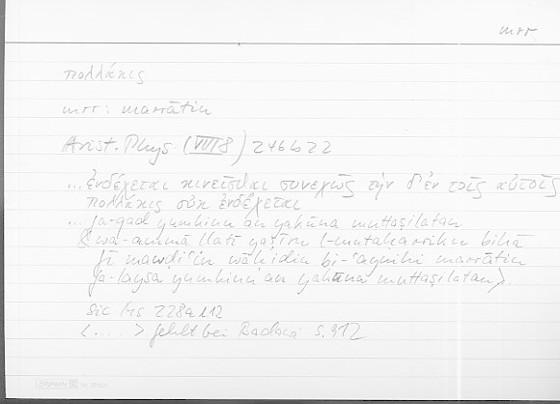 mrr
πολλάκις
mrr : marrātin
Arist. Phys. (VIII 8) 264b22
... ἐνδέχεται κινεῖσθαι συνεχῶς τὴν δ' ἐν τοῖς αὐτοῖς
πολλάκις οὐκ ἐνδέχεται
... fa-qad yumkinu an yakūna muttaṣilatan
< wa-ammā llatī yaṣīru l-mutaḥarriku bihā
fī mawḍiʿin wāḥidin bi-ʿaynihi marrātin
fa-laysa yumkinu an yakūna muttaṣilatan >.
sic Ms 228a112
< .... > fehlt bei Badawi S. 912